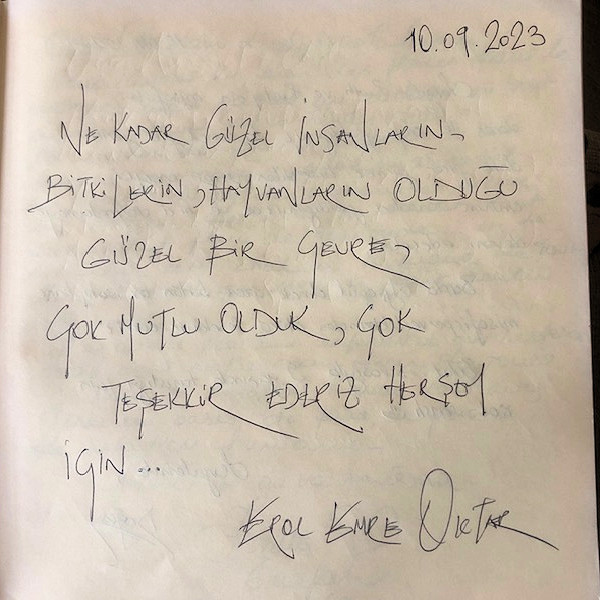 10.09.2023
NE KADAR GÜZEL İNSANLARIN,
BİTKİLERİN, HAYVANLARIN OLDUĞU
GÜZEL BİR ÇEVRE,
ÇOK MUTLU OLDUK, ÇOK
TEŞEKKÜR EDERİZ HERŞEY
İÇİN...
EROL EMRE OKTAR